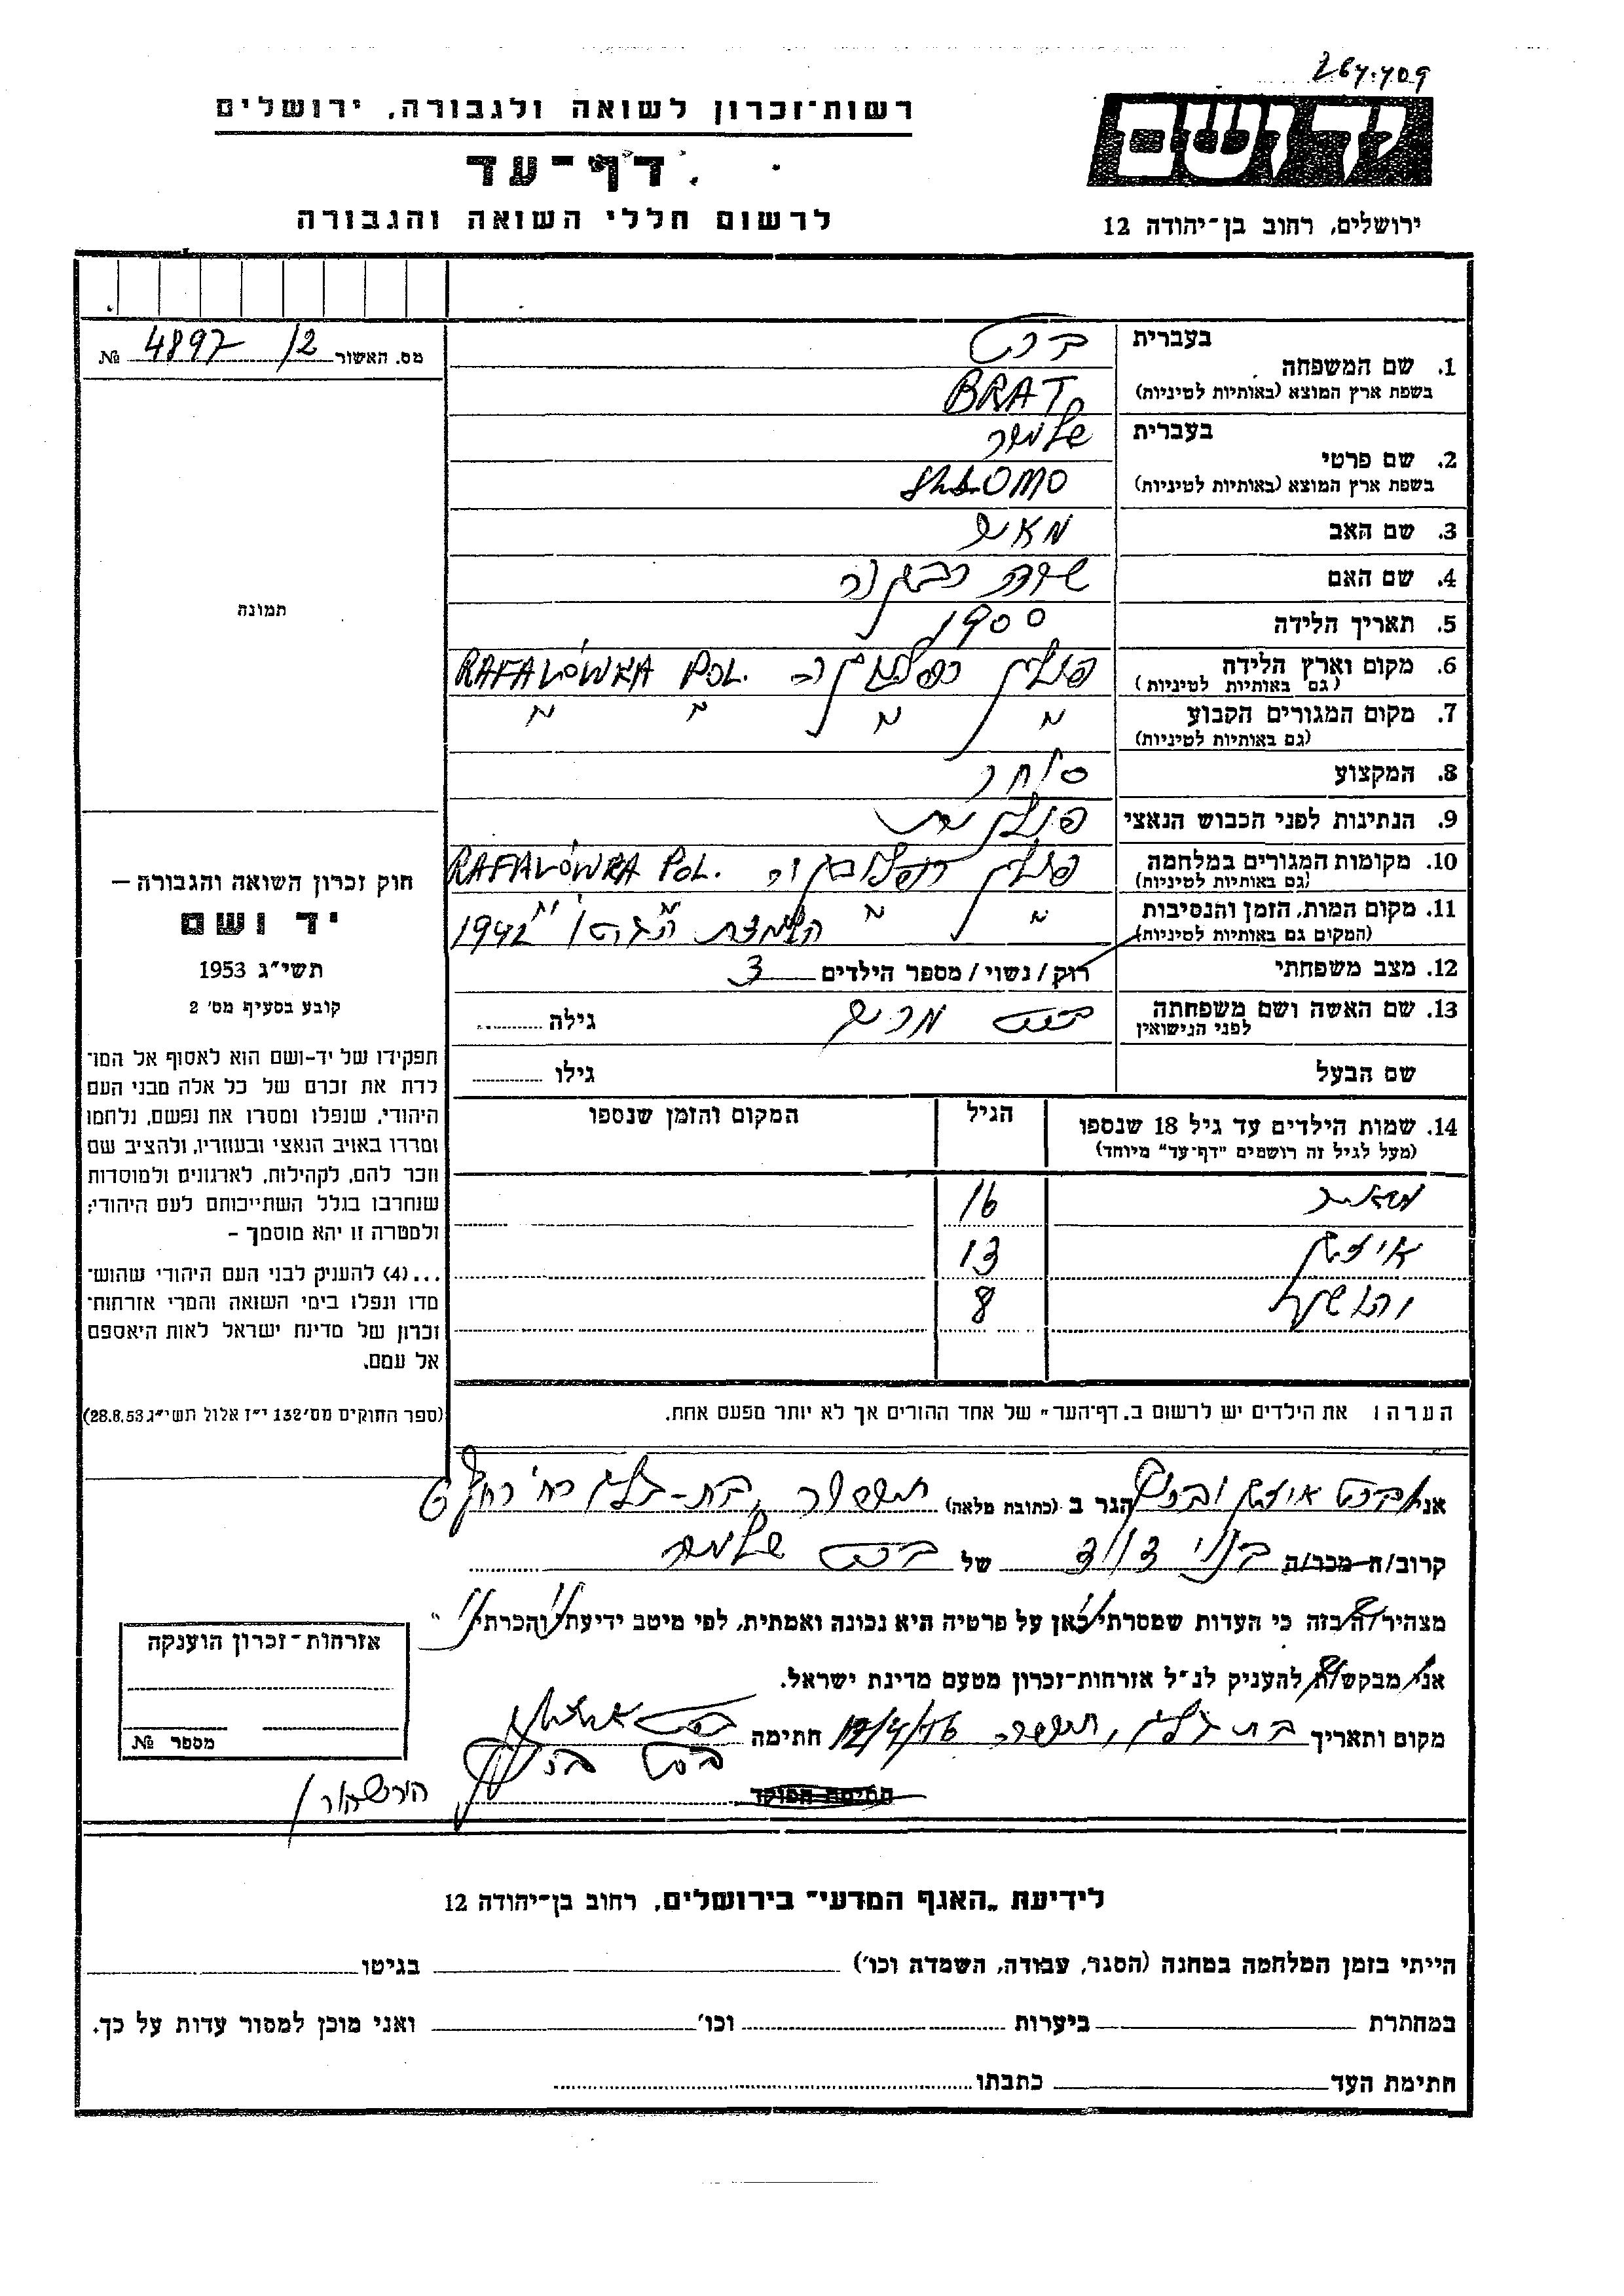 267.409
רשות־זכרון לשואה ולגבורה, ירושלים
יד ושם
דף־עד
לרשום חללי השואה והגבורה
ירושלים, רחוב בן־יהודה 12
מס. האשור 4897/2 №
תמונה
חוק זכרון השואה והגבורה –
יד ושם
תשי״ג 1953
קובע בסעיף מס׳ 2
תפקידו של יד־ושם הוא לאסוף אל המו־
לדת את זכרם של כל אלה מבני העם
היהודי, שנפלו ומסרו את נפשם, נלחמו
ומרדו באויב הנאצי ובעוזריו, ולהציב שם
וזכר להם, לקהילות, לארגונים ולמוסדות
שנחרבו בגלל השתייכותם לעם היהודי;
ולמטרה זו יהא מוסמך –
...(4) להעניק לבני העם היהודי שהוש־
מדו ונפלו בימי השואה והמרי אזרחות־
זכרון של מדינת ישראל לאות היאספם
אל עמם.
(ספר החוקים מס׳ 132 י״ז אלול תשי״ג 28.8.53)
בעברית ברט
1. שם המשפחה
בשפת ארץ המוצא (באותיות לטיניות) BRAT
בעברית שלמה
2. שם פרטי
בשפת ארץ המוצא (באותיות לטיניות) SHLOMO
3. שם האב
4. שם האם
5. תאריך הלידה 1900
6. מקום וארץ הלידה פולין רפלובקה RAFALÓWKA POL.
(גם באותיות לטיניות)
7. מקום המגורים הקבוע " " " "
(גם באותיות לטיניות)
8. המקצוע סוחר
9. הנתינות לפני הכבוש הנאצי פולנית
10. מקומות המגורים במלחמה פולין רפלובקה RAFALÓWKA POL.
(גם באותיות לטיניות)
11. מקום המות, הזמן והנסיבות " " 1942
(המקום גם באותיות לטיניות)
12. מצב משפחתי רוק/נשוי/מספר הילדים 3
13. שם האשה ושם משפחתה ברט מרים גילה
לפני הנישואין
שם הבעל גילו
14. שמות הילדים עד גיל 18 שנספו הגיל המקום והזמן שנספו
(מעל לגיל זה רושמים "דף־עד" מיוחד)
16
איציק 13
8
הערה: את הילדים יש לרשום ב„דף־העד״ של אחד ההורים אך לא יותר מפעם אחת.
אני ברט איציק הגר ב (כתובת מלאה) בת־גלים
קרוב/ה מכר/ה בני דוד של ברט שלמה
מצהיר/ה בזה כי העדות שמסרתי כאן על פרטיה היא נכונה ואמתית, לפי מיטב ידיעתי והכרתי.
אני מבקש/ת להעניק לנ״ל אזרחות־זכרון מטעם מדינת ישראל.
מקום ותאריך בת גלים חתימה ברט
חתימת הפוקד
אזרחות־זכרון הוענקה
מספר №
לידיעת „האגף המדעי״ בירושלים, רחוב בן־יהודה 12
הייתי בזמן המלחמה במחנה (הסגר, עבודה, השמדה וכו׳) בגיטו
במחתרת ביערות וכו׳ ואני מוכן למסור עדות על כך.
חתימת העד כתבתו